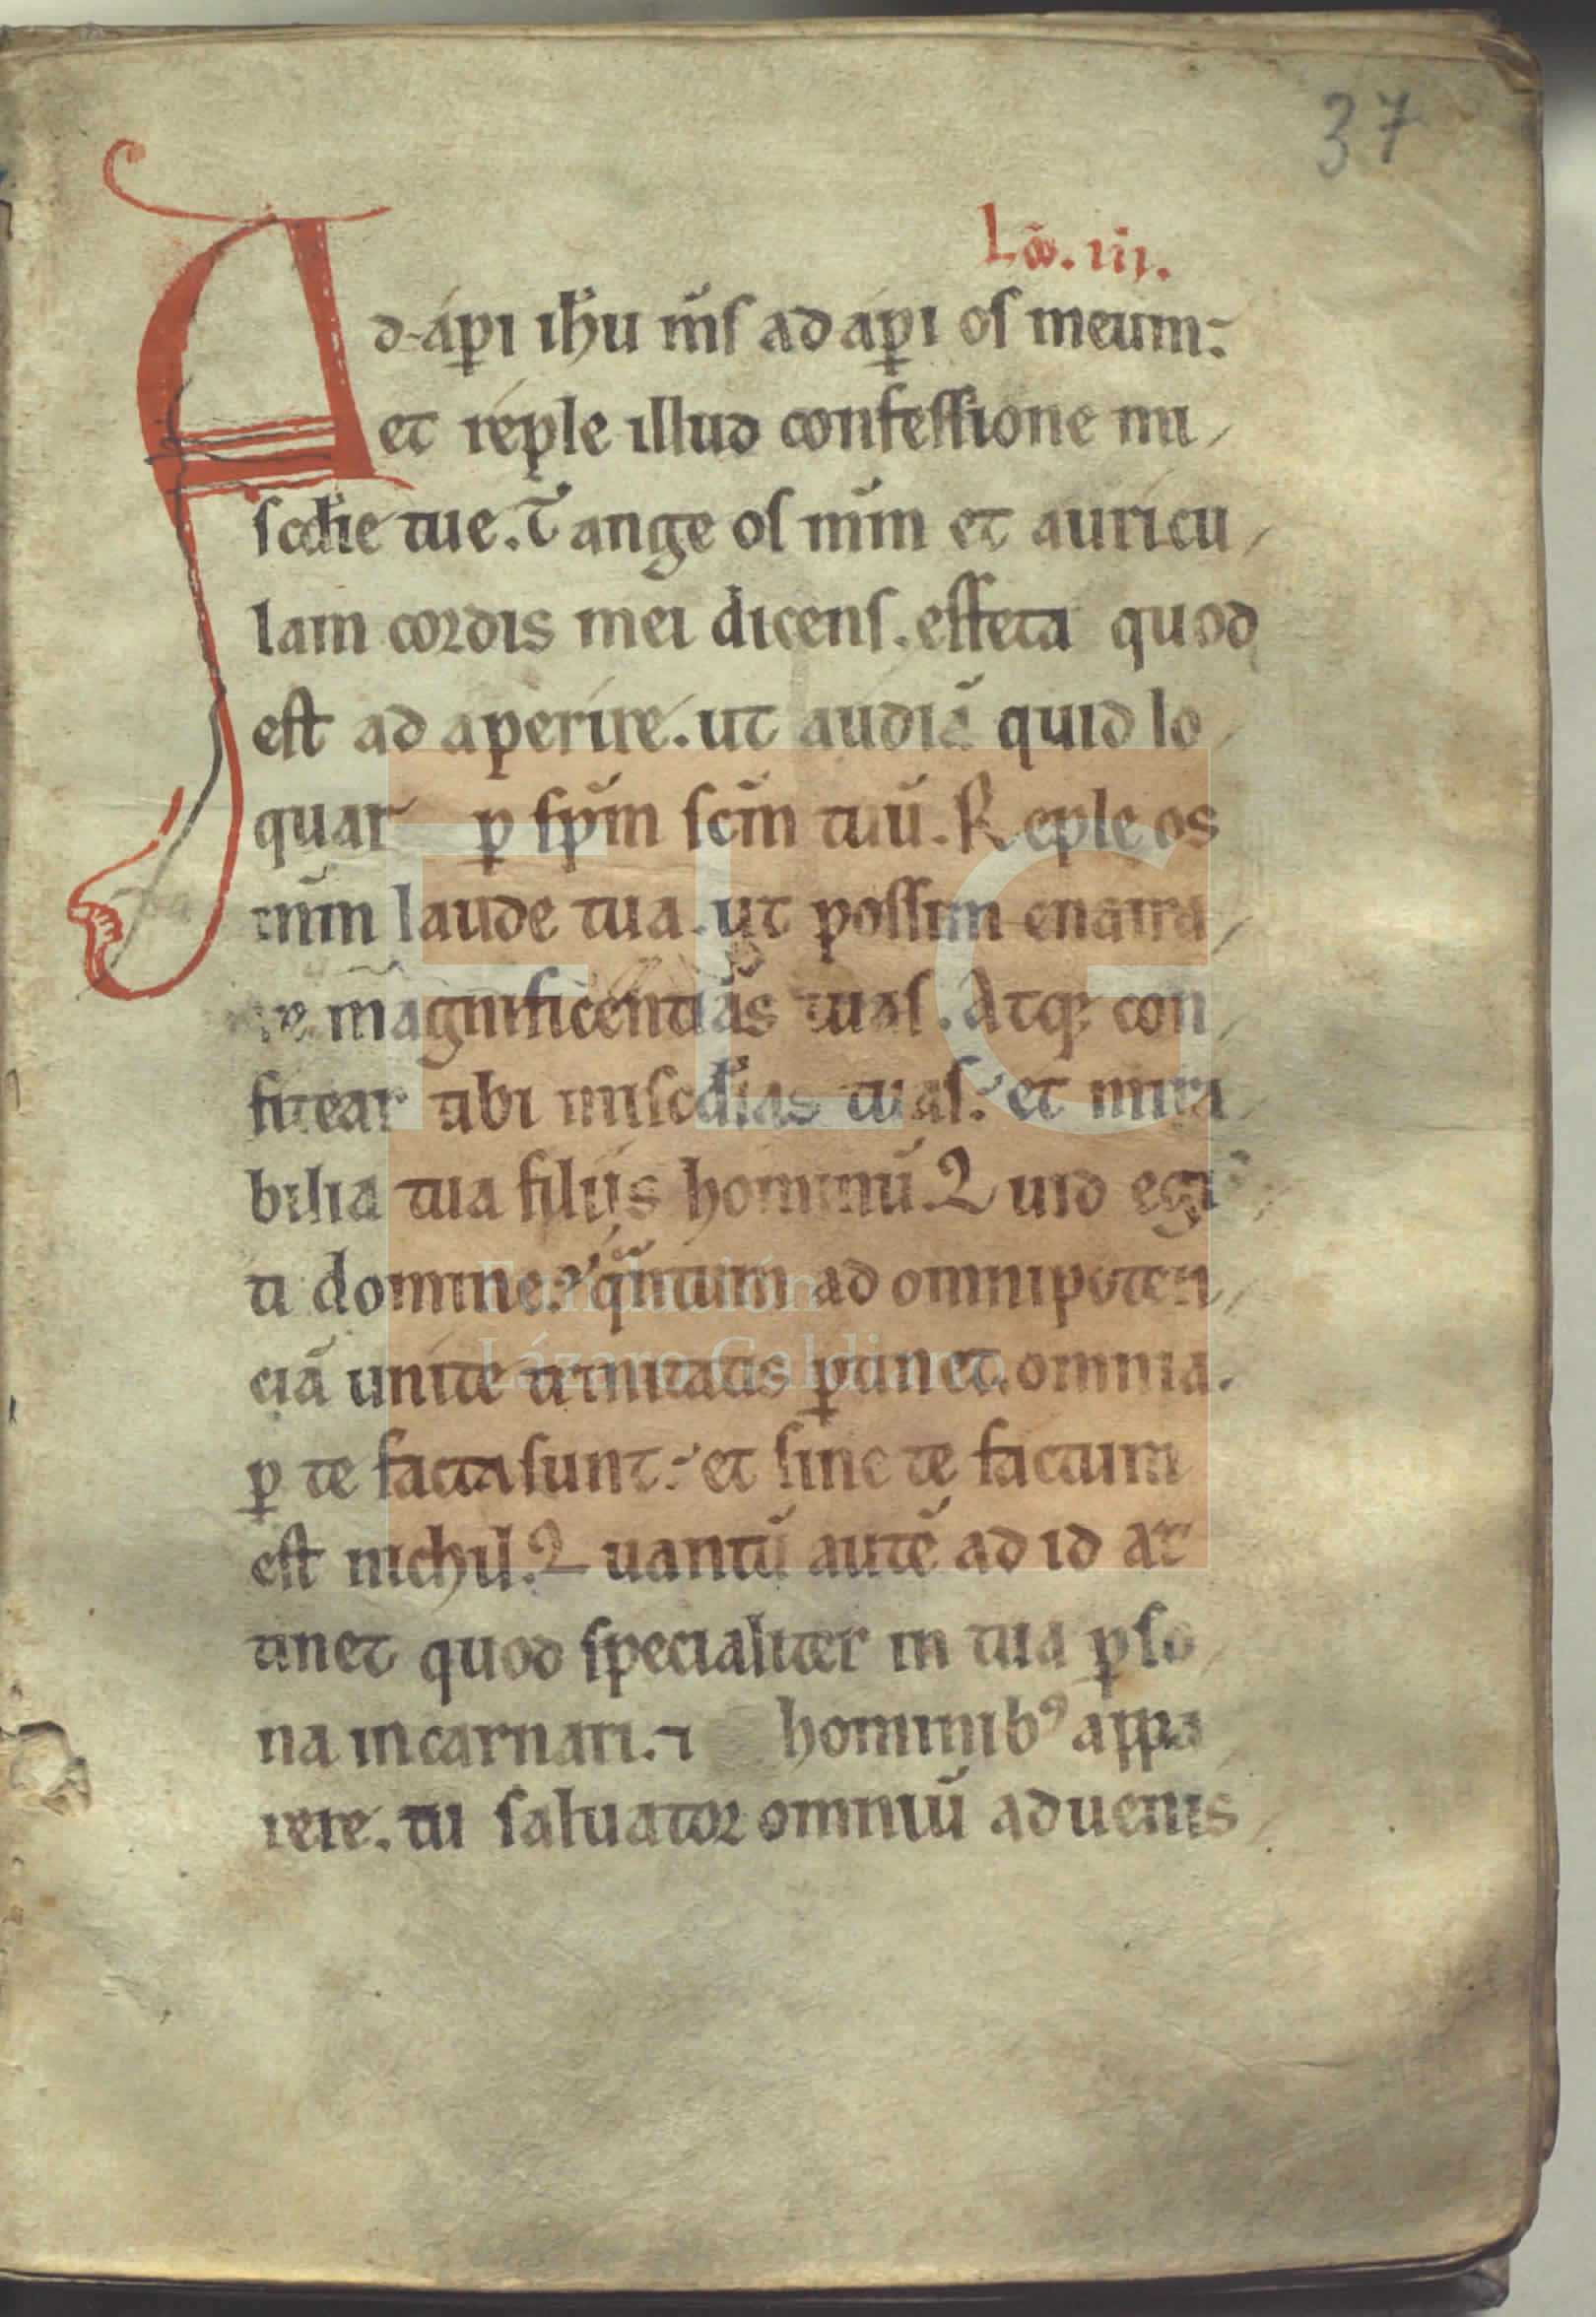 37
Lō. iij.
Ad-api ih̄u m̄s ad api os meum:
et reple illud confessione mi
scđie tue. Tange os m̄m et auricu
lam cordis mei dicens. effeta quod
est ad aperire. ut audiā quid lo
quar p sp̄m sc̄m tuū. Reple os
m̄m laude tua. ut possim enarra
re magnificentias tuas. Atq; con
fitear tibi miscđias tuas: et mira
bilia tua filijs hominū. Quid egi
ti domine? q̄ntum ad omnipoten
ciā unite trinitatis ptinet. omnia.
p te facta sunt: et sine te factum
est nichil. Quantū autē ad id at
tinet quod specialiter in tua pso
na incarnari. ⁊ hominibꝰ appa
rere. tu saluator omniū aduenis
FLG
Fundación
Lázaro Galdiano